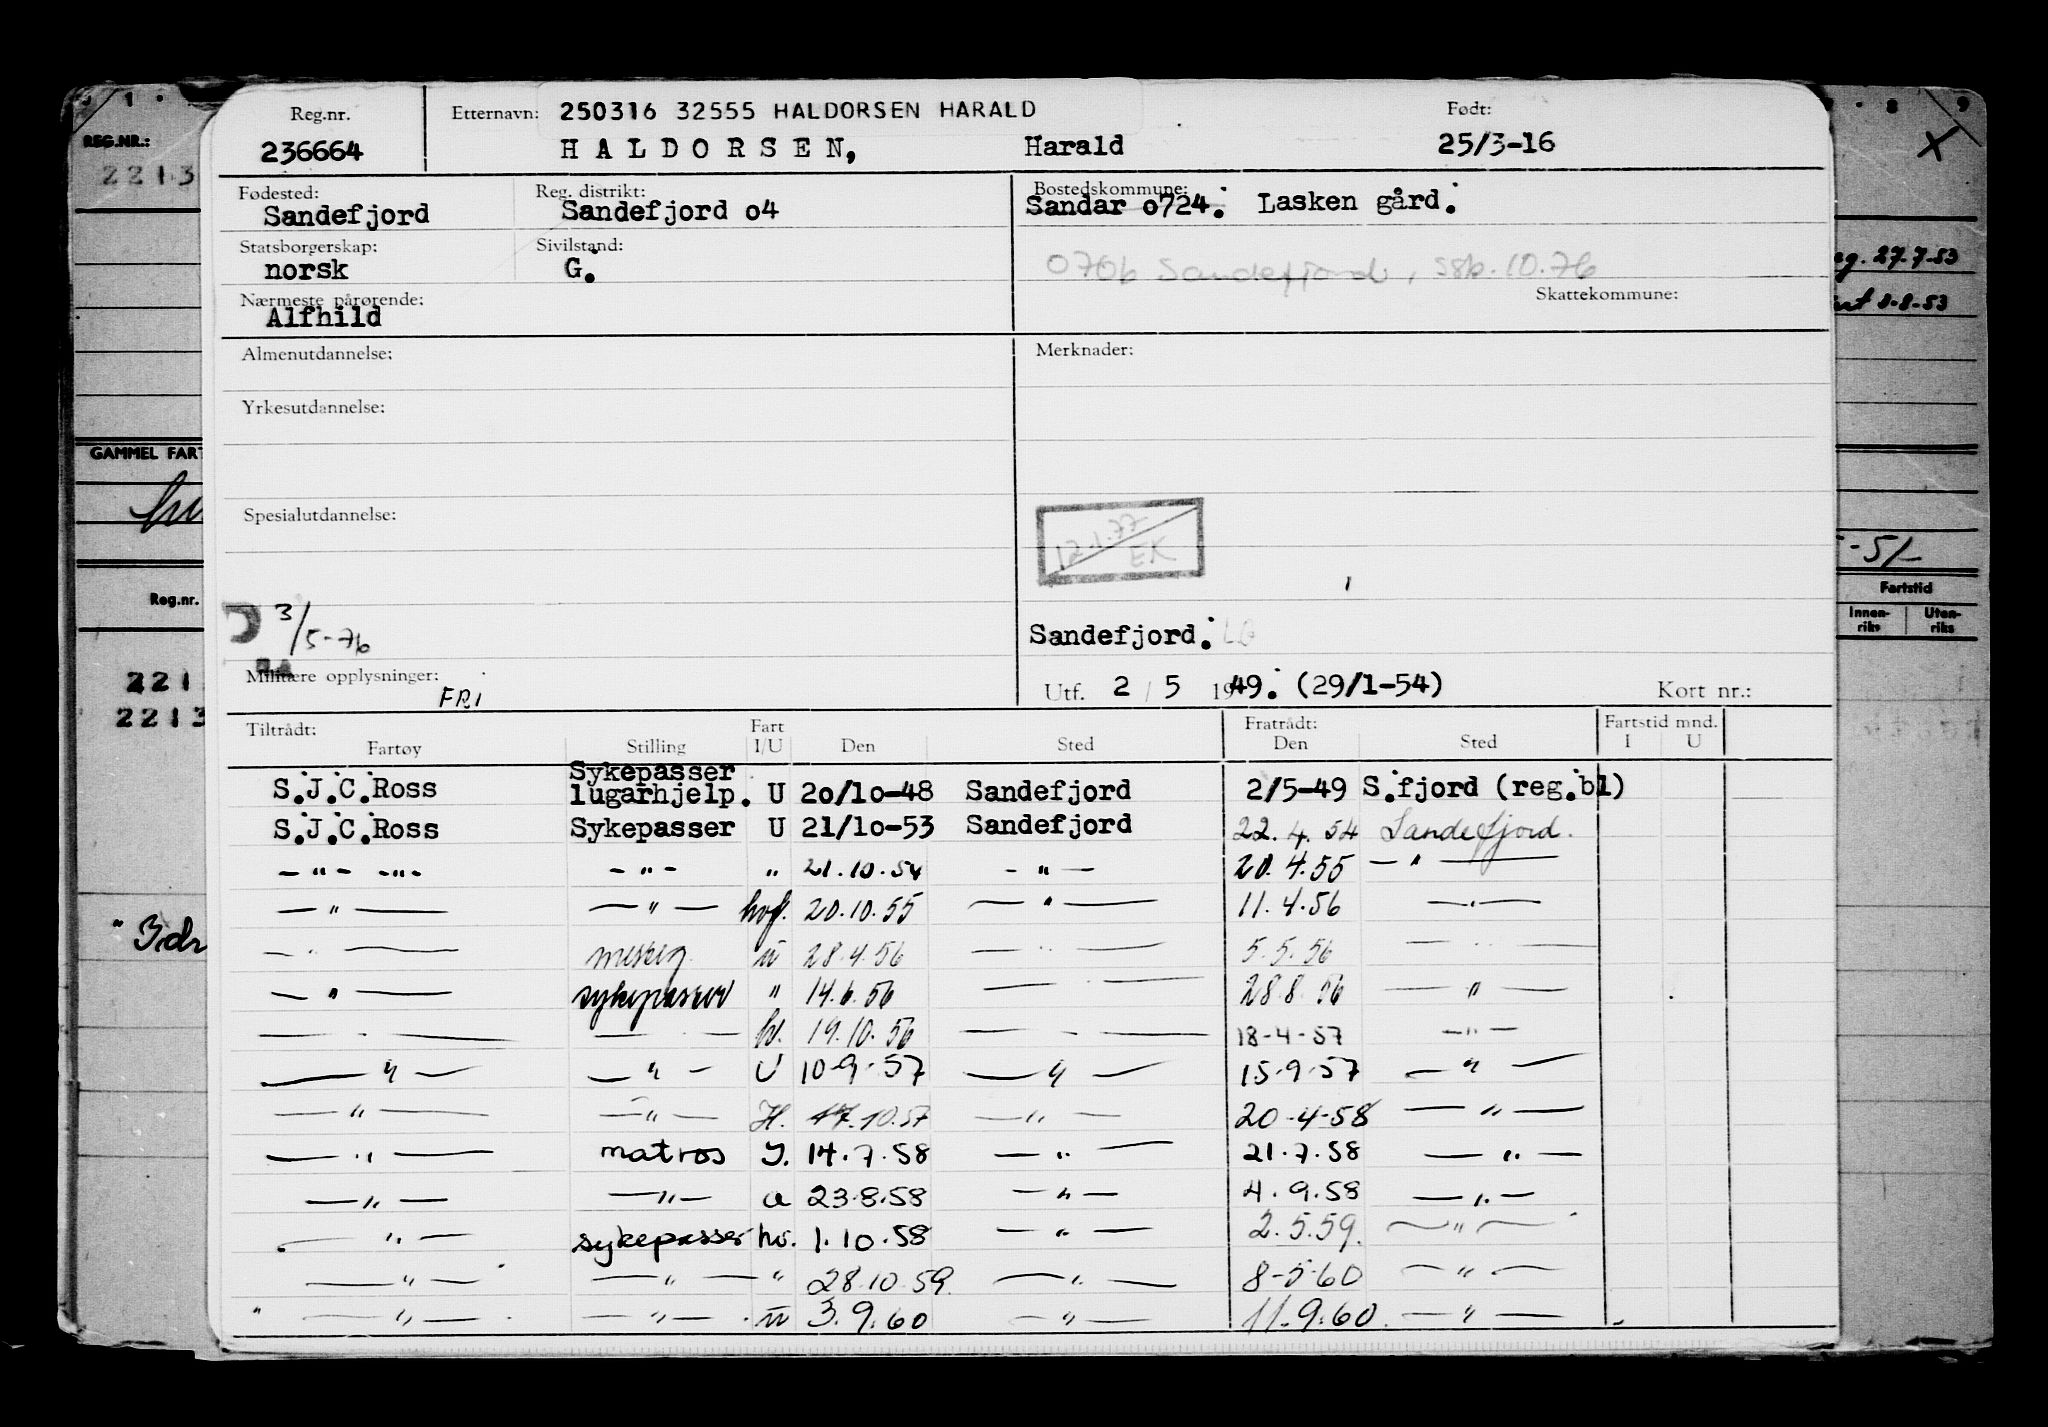 Reg.nr. Etternavn: 250316 32555 HALDORSEN HARALD Født:
236664 HALDORSEN, Harald 25/3-16
REG.NR.:
2213
Fødested: Reg. distrikt: Bostedskommune:
Sandefjord Sandefjord o4 Sandar o724. Lasken gård.
Statsborgerskap: Sivilstand:
norsk G. 0706 Sandefjord, ssk. 10.76
Nærmeste pårørende: Skattekommune:
Alfhild
27.7.53
8-8-53
Almenutdannelse: Merknader:
Yrkesutdannelse:
GAMMEL FART
Spesialutdannelse:
12.1.77
EK
5-51
Reg.nr. Fartstid
Innen-riks Uten-riks
3/5-76
Sandefjord.
221
2213
Militære opplysninger: FRI
Utf. 2 / 5 1949. (29/1-54) Kort nr.:
Tiltrådt: Fart Fratrådt: Fartstid mnd.
Fartøy Stilling I/U Den Sted Den Sted I U
S.J.C.Ross Sykepasser lugarhjelp. U 2o/1o-48 Sandefjord 2/5-49 S.fjord (reg.bl)
S.J.C.Ross Sykepasser U 21/1o-53 Sandefjord 22.4.54 Sandefjord.
-"- -"- -"- " 21.10.54 -"- 20.4.55 -"-
-"- -"- hvf. 20.10.55 -"- 11.4.56 -"-
-"- u 28.4.56 -"- 5.5.56 -"-
-"- sykepasser " 14.6.56 -"- 28.8.56 -"-
-"- -"- hv. 19.10.56 -"- 18-4-57 -"-
-"- -"- U 10-9-57 -"- 15-9-57 -"-
-"- -"- H. 17.10.57 -"- 20-4-58 -"-
-"- matros I. 14.7.58 -"- 21.7.58 -"-
-"- -"- u 23.8.58 -"- 4.9.58 -"-
-"- sykepasser hv. 1.10.58 -"- 2.5.59. -"-
-"- -"- " 28.10.59. -"- 8-5-60 -"-
-"- -"- u 3.9.60 -"- 11.9.60. -"-